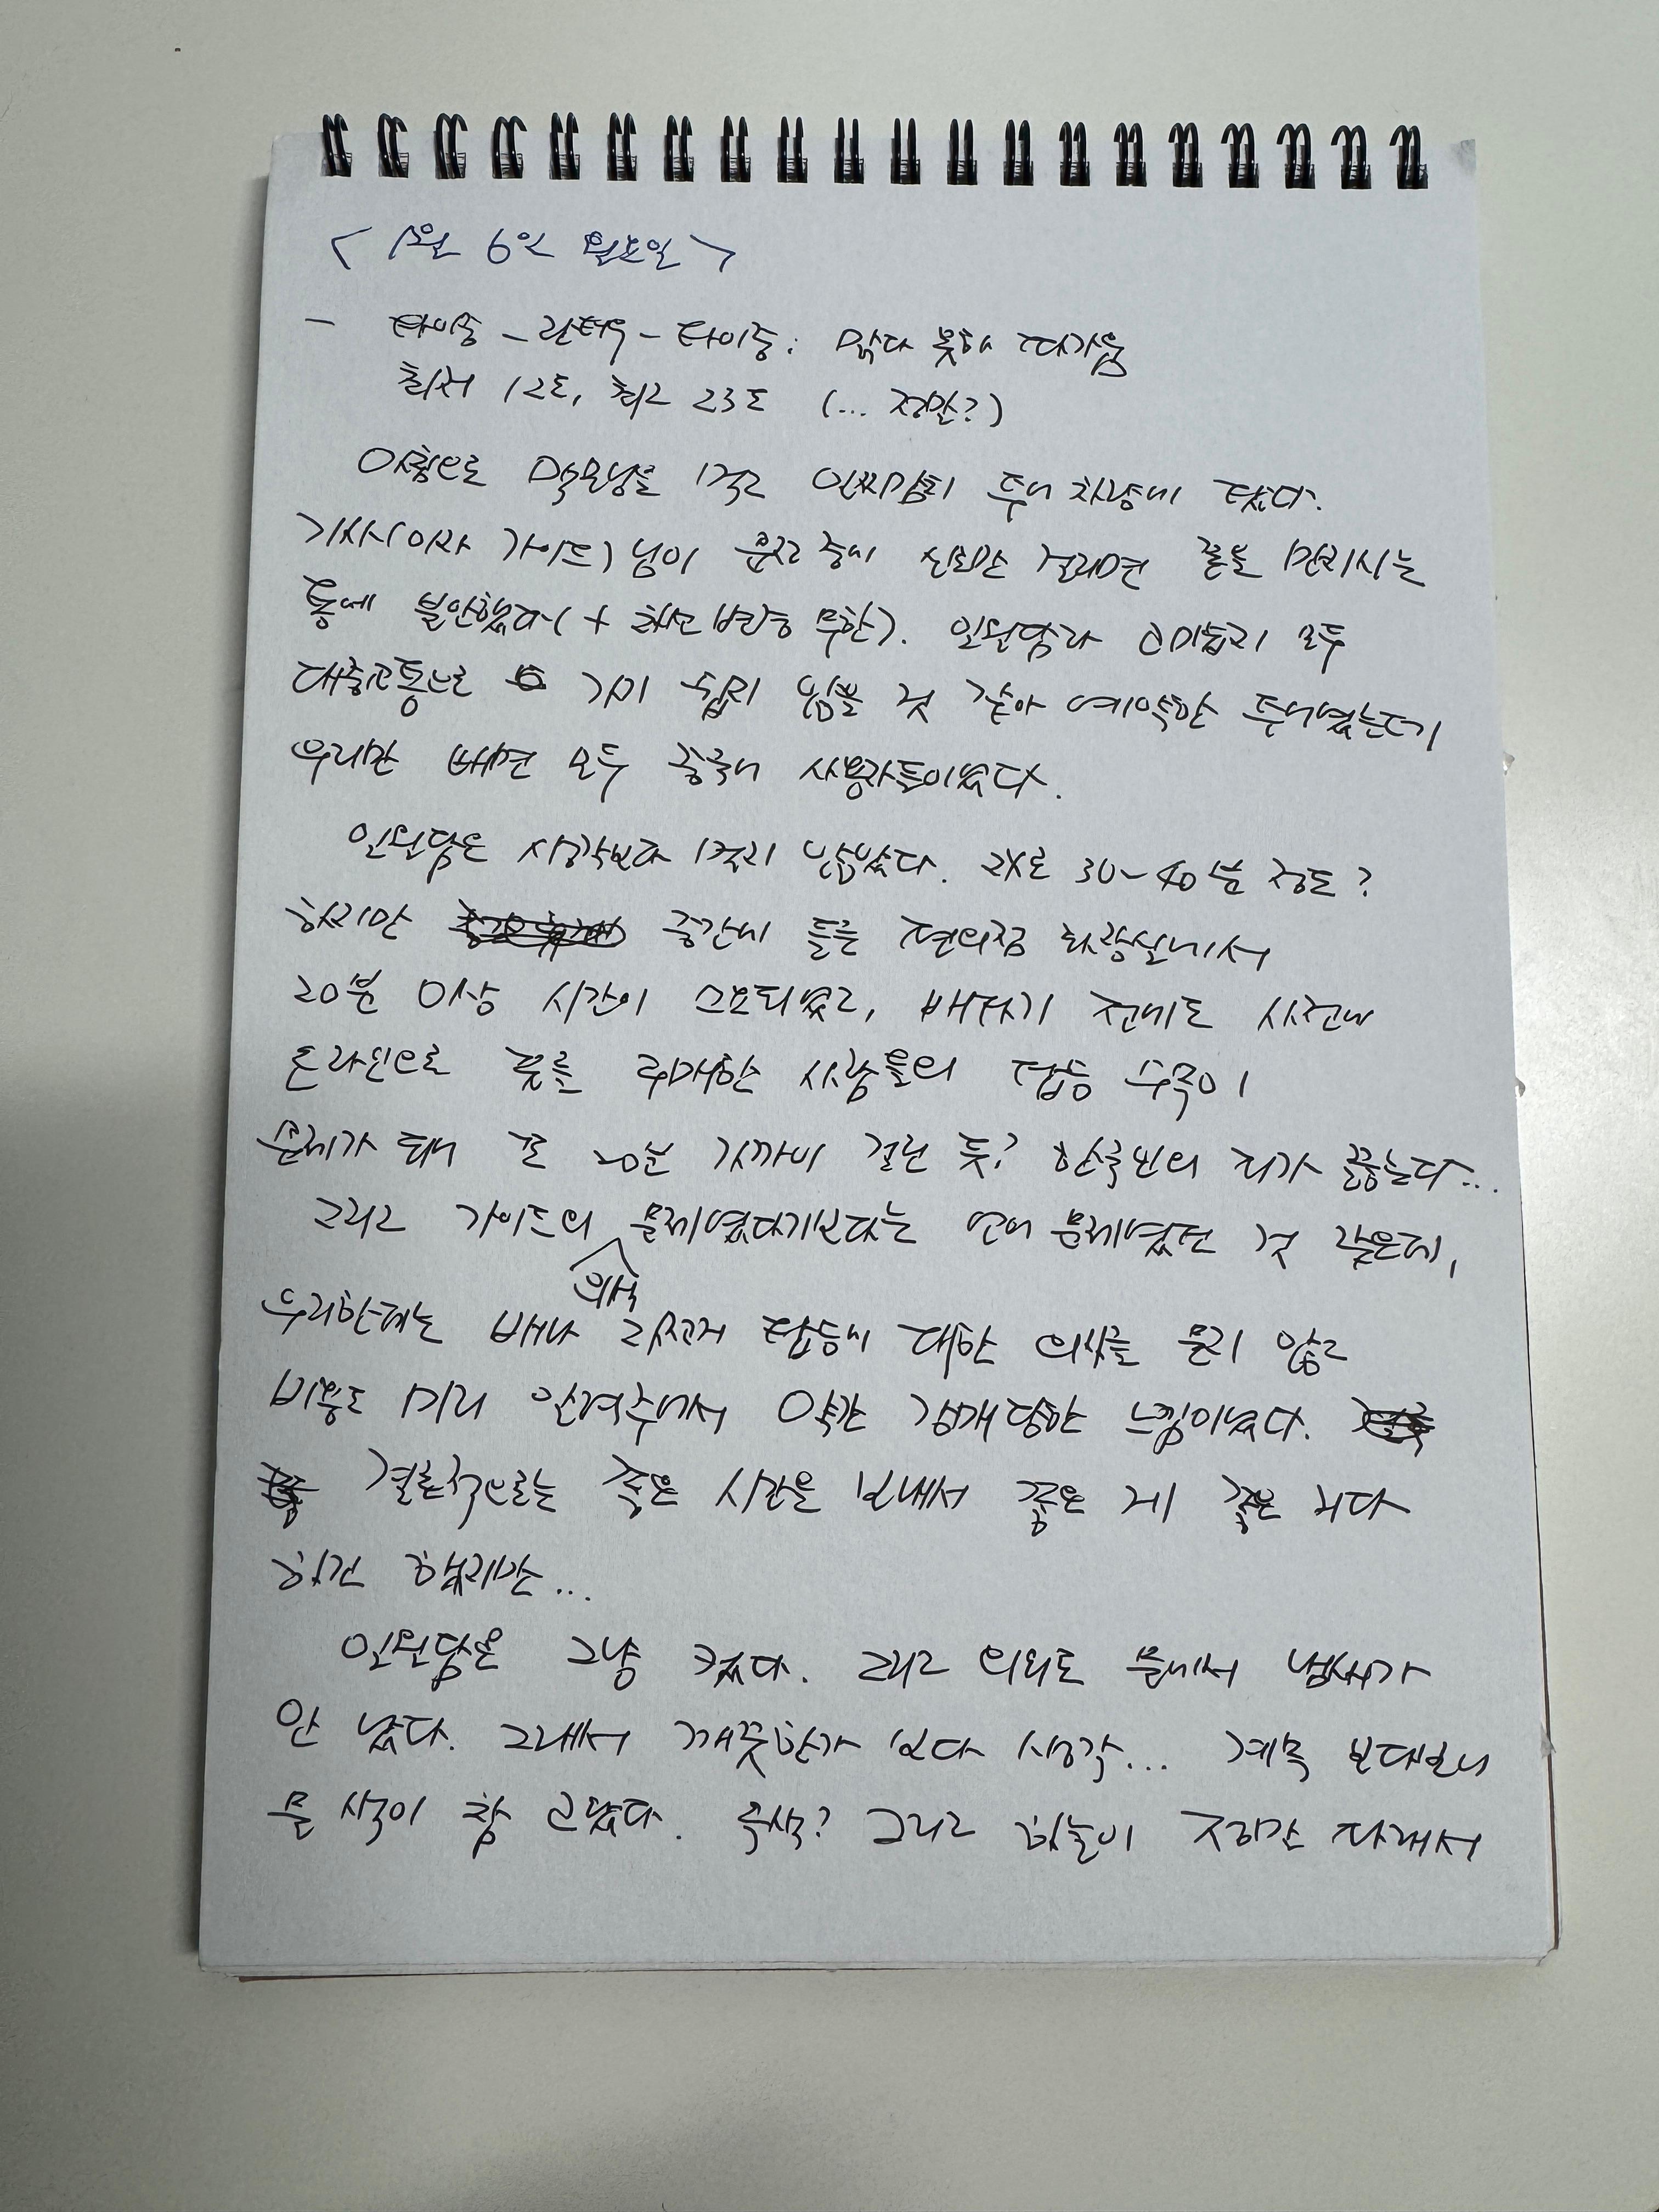 < 1월 6일 월요일 >
- 타이중 - 르웨탄 - 타이중: 맑다 못해 따가움
최저 12도, 최고 23도 (... 정말?)
아침으로 먹고 일찌감치 투어 차량에 탔다.
기사(이자 가이드)님이 운전 중에 신호만 걸리면 폰을 만지시는
통에 불안했다(+ 차선 변경 무한). 일월담과 모두
대중교통으로 가기 쉽지 않을 것 같아 예약한 투어였는데
우리만 빼면 모두 중국어 사용자들이었다.
일월담은 생각보다 멀지 않았다. 30~40분 정도?
하지만 중간에 들른 편의점 화장실에서
20분 이상 시간이 소요되었고, 배타기 전에도 사전에
온라인으로 표를 구매한 사람들의 탑승 수속이
문제가 되어 또 20분 가까이 걸린 듯? 한국인의 피가 끓는다...
그리고 가이드의 의식 문제였다기보다는 언어 문제였던 것 같은데,
우리한테는 배나 자전거 탑승에 대한 의사를 묻지 않고
비용도 미리 안 알려주어서 약간 강매당한 느낌이었다.
결론적으로는 좋은 시간을 보내서 좋은 게 좋은 거다
하긴 했지만...
일월담은 그냥 컸다. 그리고 의외로 물에서 냄새가
안 났다. 그래서 깨끗한가 보다 생각... 계속 보다보니
물 색이 참 고왔다. 옥색? 그리고 하늘이 정말 파래서